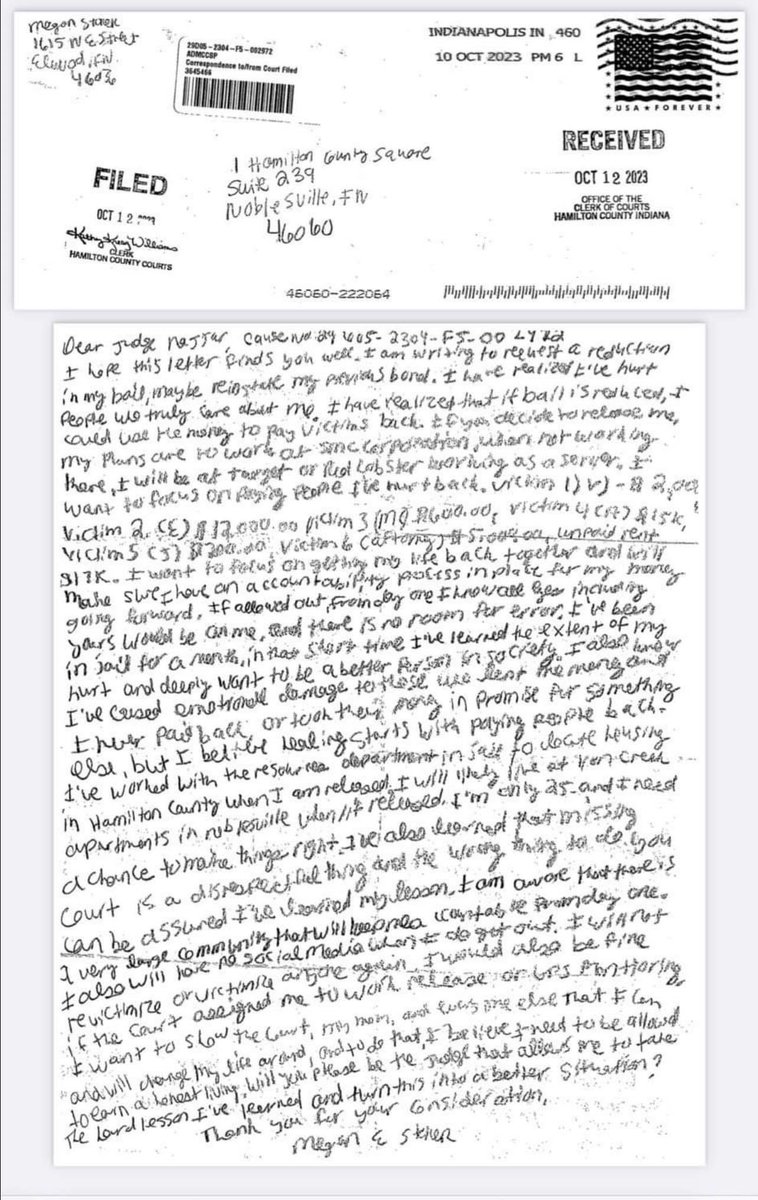 Megan
1615 N E Street
Elwood, IN
4603
29D05-2304-F5-002972
ADMCCSP
Correspondence to/from Court Filed
3645466
INDIANAPOLIS IN 460
10 OCT 2023 PM 6 L
USA FOREVER
RECEIVED
OCT 12 2023
OFFICE OF THE
CLERK OF COURTS
HAMILTON COUNTY INDIANA
FILED
OCT 12
CLERK
HAMILTON COUNTY COURTS
1 Hamilton County Square
Suite 239
Noblesville, IN
46060
46060-222064
Dear Judge Najjar, Cause No. 29 2304-F5-00
I hope this letter finds you well. I am writing to request a reduction
in my bail, maybe reinstate my previous bond. I have realized I've hurt
people who truly care about me. I have realized that if bail is reduced, I
could use the money to pay victims back. If you decide to release me,
my plans are to work at SMC Corporation, when not working
there, I will be at Target or Red Lobster working as a server. I
want to focus on paying people I've hurt back. Victim 1
Victim 2 (E) $12,000.00 Victim 3 (M) $600.00, Victim 4 $15K,
Victim 5 (J) Victim 6 unpaid rent
I want to focus on getting my life back together and will
make sure I have an accountability process in place for my money
going forward. If allowed out, from day one I know all eyes including
yours would be on me, and there is no room for error. I've been
in jail for a month, in that short time I've learned the extent of my
hurt and deeply want to be a better person in society. I also know
I've caused emotional damage to those who lent the money and
I never paid back, or took their money in promise for something
else, but I believe healing starts with paying people back.
I've worked with the resources department in jail to locate housing
in Hamilton County when I am released. I will likely live at Creek
apartments in noblesville when released. I'm only 25 and I need
a chance to make things right. I've also learned that missing
court is a disrespectful thing and the wrong thing to do. You
can be assured I've learned my lesson. I am aware that there is
a very large community that will keep me accountable from day one.
I also will have no social media when I do get out. I will not
revictimize or victimize anyone again. I would also be fine
if the court assigned me to work release or GPS monitoring.
I want to show the court, my mom, and everyone else that I can
and will change my life around, and to do that, I believe I need to be allowed
to earn a honest living. Will you please be the Judge that allows me to take
the hard lesson I've learned and turn this into a better situation?
Thank you for your consideration,
Megan E